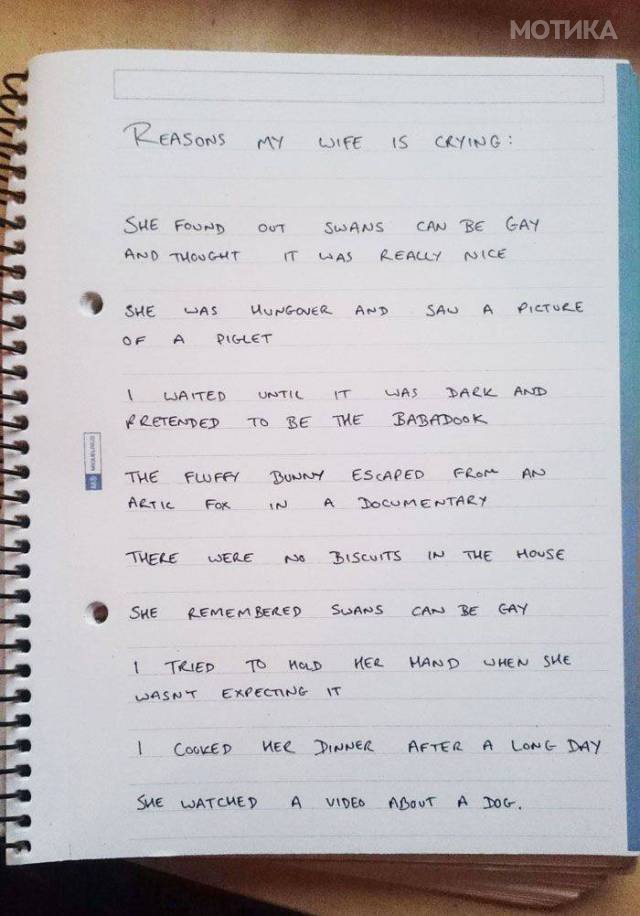 МОТИКА
REASONS MY WIFE IS CRYING:
SHE FOUND OUT SWANS CAN BE GAY
AND THOUGHT IT WAS REALLY NICE
SHE WAS HUNGOVER AND SAW A PICTURE
OF A PIGLET
I WAITED UNTIL IT WAS DARK AND
PRETENDED TO BE THE BABADOOK
THE FLUFFY BUNNY ESCAPED FROM AN
ARTIC FOX IN A DOCUMENTARY
THERE WERE NO BISCUITS IN THE HOUSE
SHE REMEMBERED SWANS CAN BE GAY
I TRIED TO HOLD HER HAND WHEN SHE
WASNT EXPECTING IT
I COOKED HER DINNER AFTER A LONG DAY
SHE WATCHED A VIDEO ABOUT A DOG.